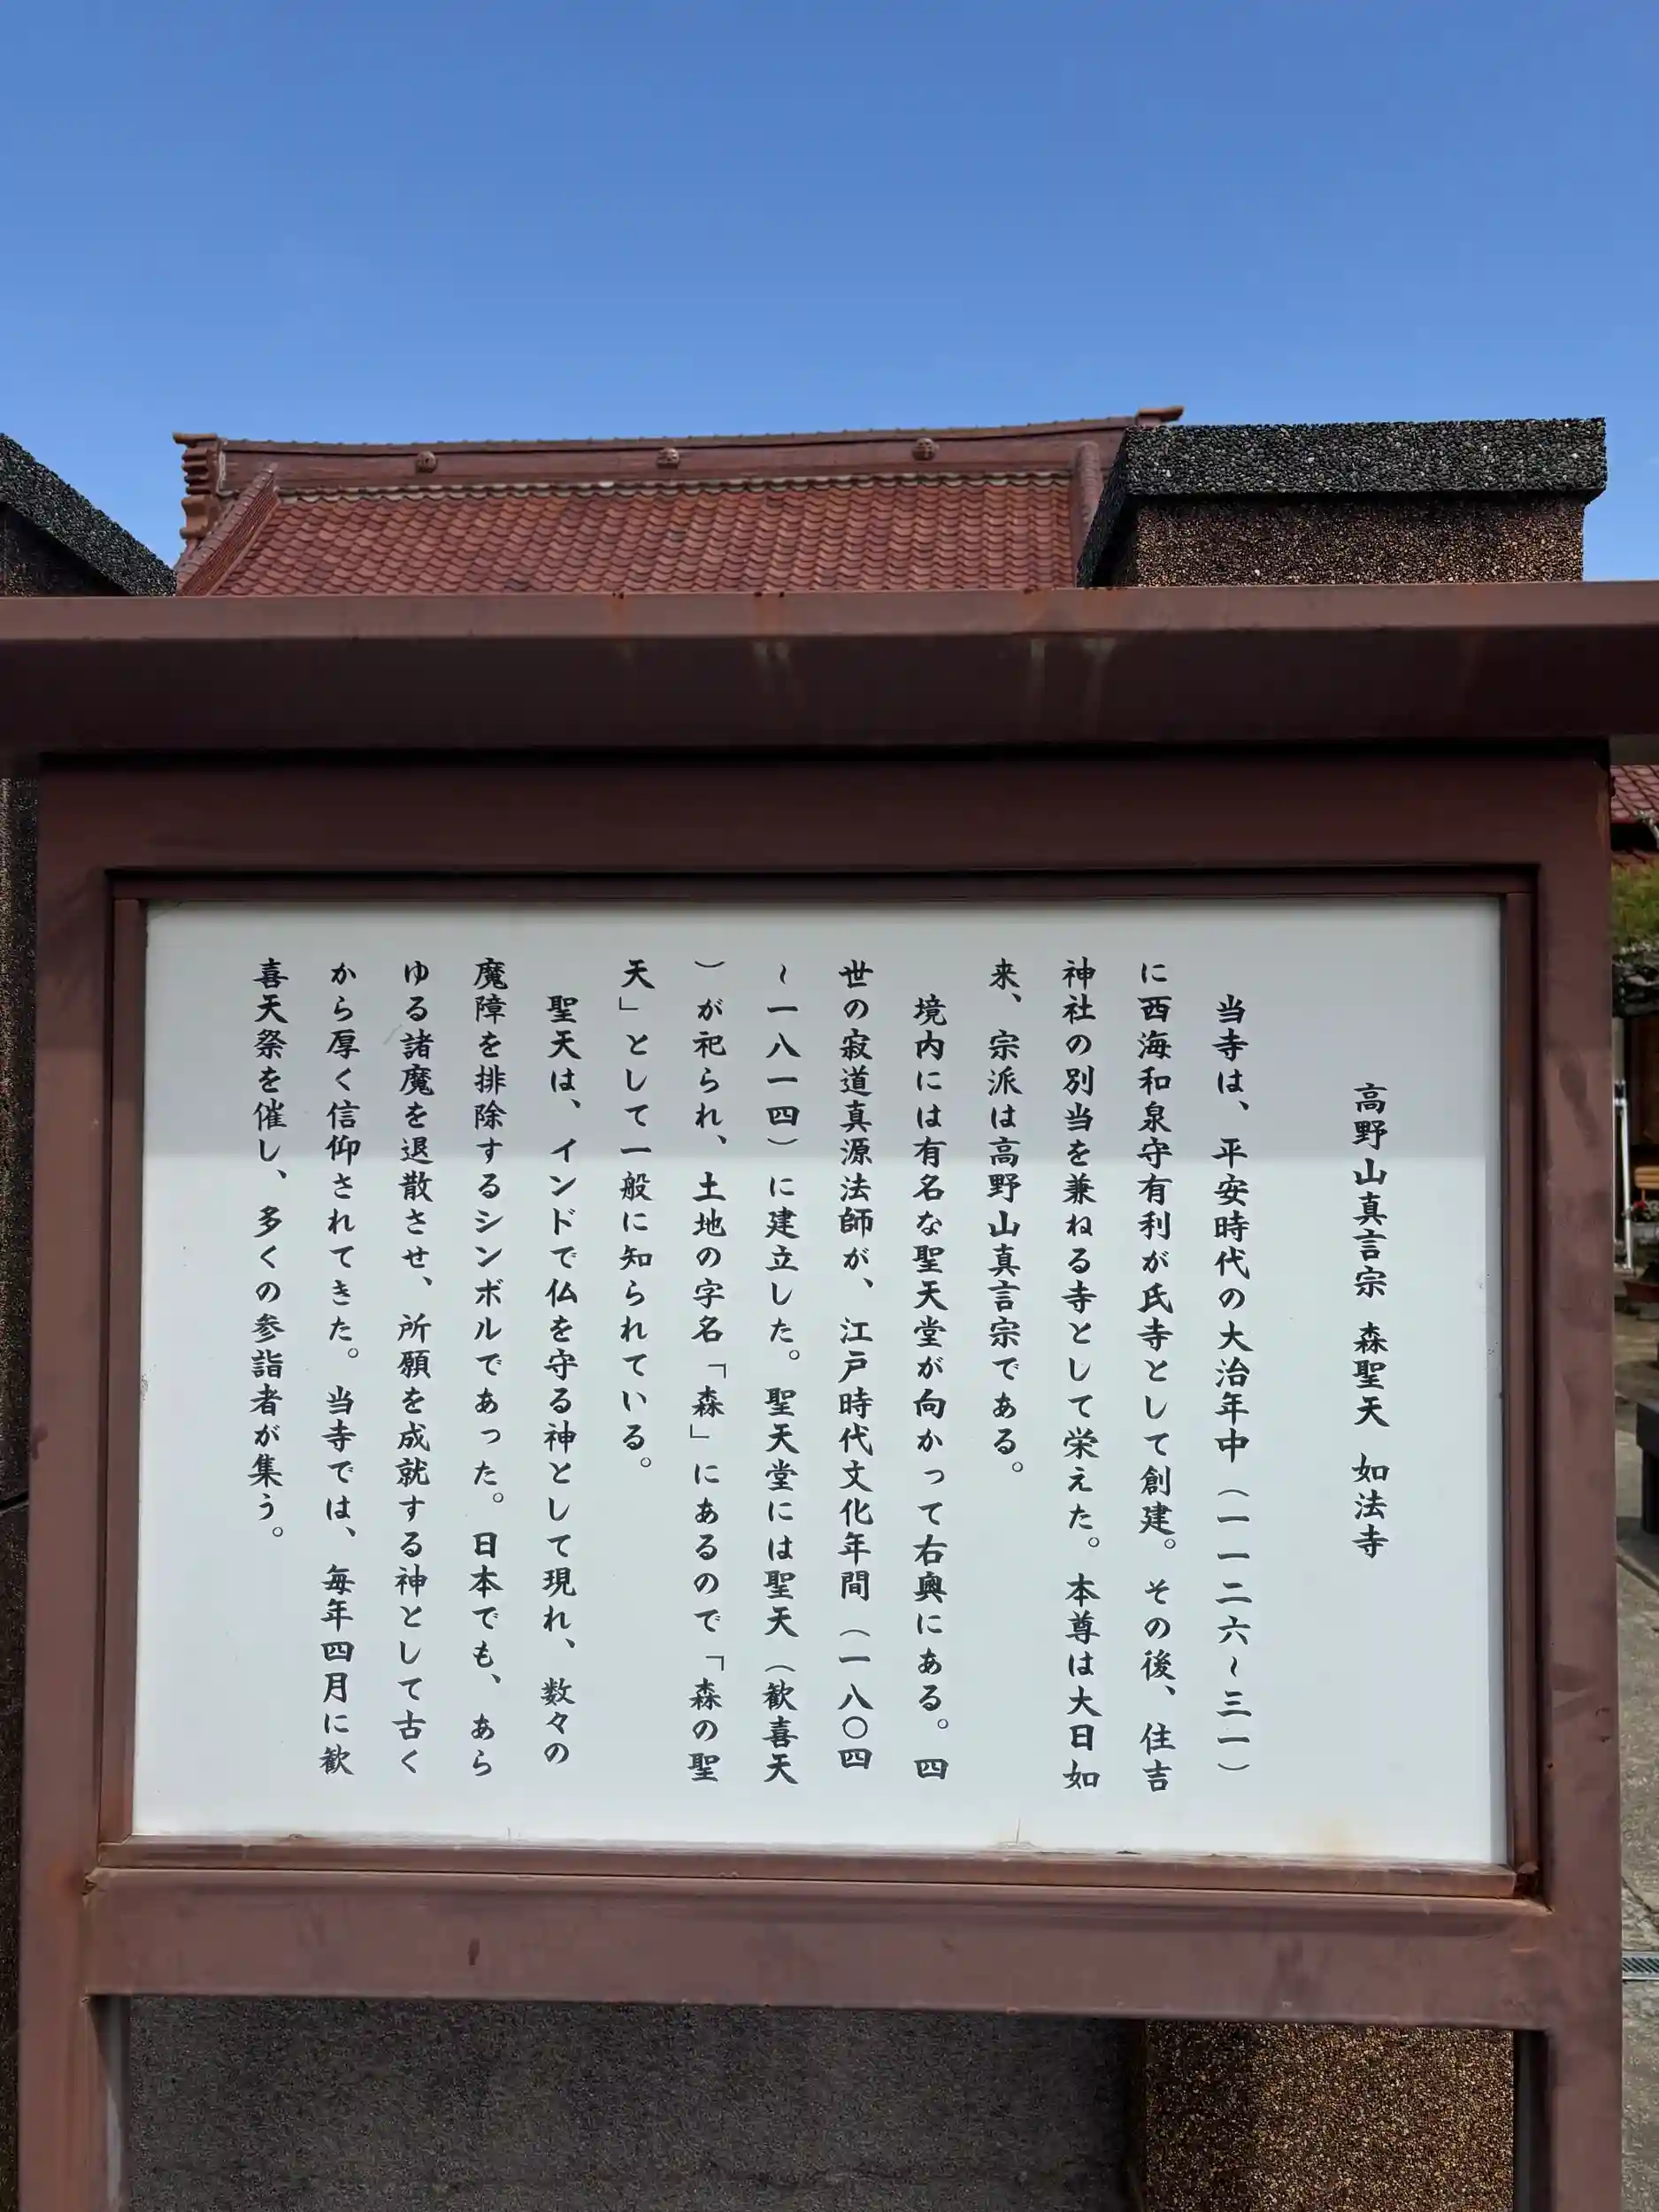 高野山真言宗 森聖天 如法寺
当寺は、平安時代の大治年中（一一二六～三一）
に西海和泉守有利が氏寺として創建。その後、住吉
神社の別当を兼ねる寺として栄えた。本尊は大日如
来、宗派は高野山真言宗である。
境内には有名な聖天堂が向かって右奥にある。四
世の寂道真源法師が、江戸時代文化年間（一八〇四
～一八一四）に建立した。聖天堂には聖天（歓喜天
）が祀られ、土地の字名「森」にあるので「森の聖
天」として一般に知られている。
聖天は、インドで仏を守る神として現れ、数々の
魔障を排除するシンボルであった。日本でも、あら
ゆる諸魔を退散させ、所願を成就する神として古く
から厚く信仰されてきた。当寺では、毎年四月に歓
喜天祭を催し、多くの参詣者が集う。